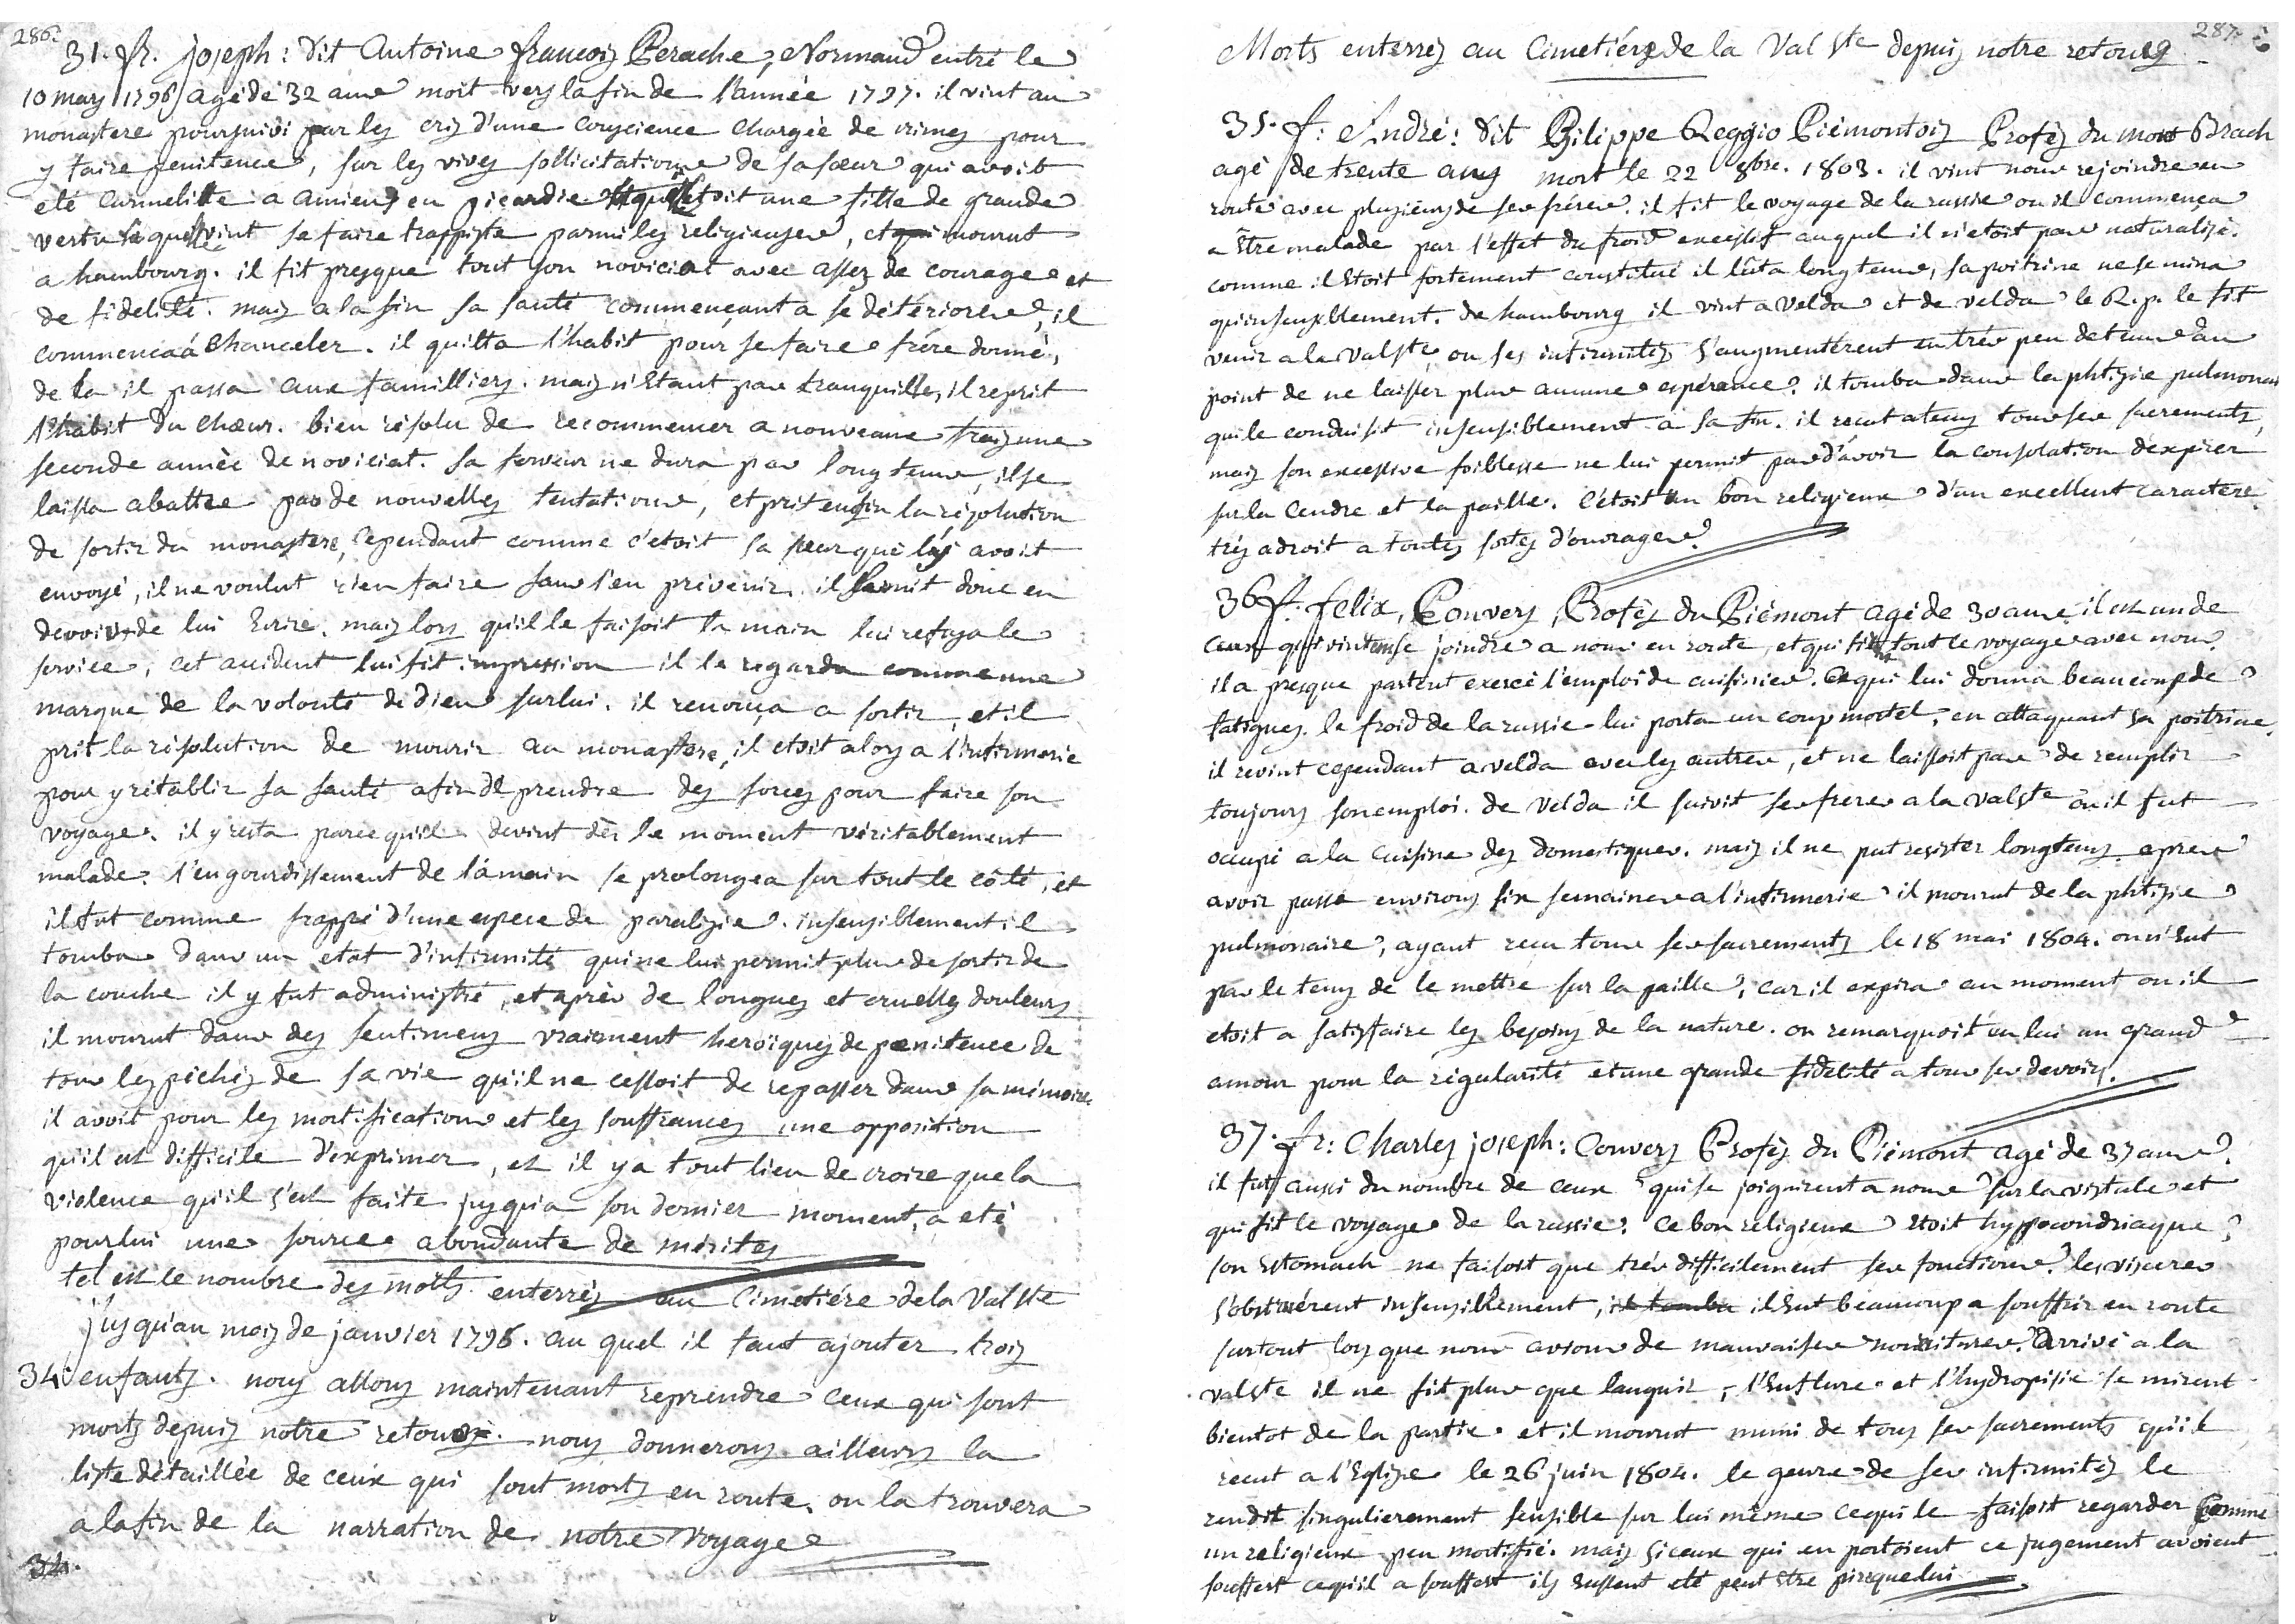 286.
31. fr. joseph: dit Antoine françois Perache, Normand entré le
10 mars 1796 agé de 32 ans mort vers la fin de l'année 1797. il vint au
monastere poursuivi par les cris d'une conscience chargée de crimes pour
y faire penitence, sur les vives sollicitations de sa sœur qui avoit
eté carmelitte a amiens en picardie qui etoit une fille de grande
vertu qui vint se faire trappiste parmi les religieuses, et mourut
a hambourg. il fit presque tout son noviciat avec assez de courage et
de fidelité. mais a la fin sa santé commençant a se détériorer, il
commenca á chanceler. il quitta l'habit pour se faire frére donné,
de la il passa aux familliers. mais n'étant pas tranquille, il reprit
l'habit du chœur. bien résolu de recommencer a nouveaux frais une
seconde année de noviciat. sa ferveur ne dura pas long tems, il se
laissa abattre par de nouvelles tentations, et prit enfin la résolution
de sortir du monastere, cependant comme c'étoit sa sœur qui l'y avoit
envoyé, il ne voulut rien faire sans l'en prévenir. il se mit donc en
devoir de lui écrire. mais lors qu'il le faisoit la main lui refusa le
service, cet accident lui fit impression il le regarda comme une
marque de la volonté de dieu sur lui. il renonça a sortir, et il
prit la résolution de mourir au monastere, il etoit alors a l'infirmerie
pour y rétablir sa santé afin de prendre des forces pour faire son
voyage. il y resta parce qu'il devint dès le moment véritablement
malade. l'engourdissement de la main se prolongea sur tout le côté, et
il fut comme frappé d'une espece de paralizie. insensiblement il
tomba dans un etat d'infirmité qui ne lui permit plus de sortir de
la couche il y fut administré, et après de longues et cruelles douleurs
il mourut dans des sentimens vraiment heroïques de pœnitence de
tous les péchés de sa vie qu'il ne cessoit de repasser dans sa mémoire
il avoit pour les mortifications et les souffrances une opposition
qu'il est difficile d'exprimer, et il y a tout lieu de croire que la
violence qu'il s'est faite jusqu'a son dernier moment, a eté
pour lui une source abondante de mérites
tel est le nombre des morts enterrés au Cimetiére de la Val Ste
jusqu'au mois de janvier 1796. au quel il faut ajouter trois
34 enfants. nous allons maintenant reprendre ceux qui sont
morts depuis notre retour. nous donnerons ailleurs la
liste détaillée de ceux qui sont morts en route. on la trouvera
a la fin de la narration de notre voyage
34.
287.
Morts enterrés au Cimetiére de la Val Ste depuis notre retour
35. f: André: dit Philippe Reggio Piémontois Profès du mont Brach
agé de trente ans mort le 22 8bre. 1803. il vint nous rejoindre en
route avec plusieurs de ses fréres. il fit le voyage de la russie ou il commença
a être malade par l'effet du froid excessif auquel il n'etoit pas naturalisé.
comme il étoit fortement constitué il lûta long tems, sa poitrine ne se mina
qu'insensiblement. de hambourg il vint a velda et de velda le R. p. le fit
venir a la Valste, ou ses infirmités s'augmentérent en très peu de tems au
point de ne laisser plus aucune espérance. il tomba dans la phtizie pulmonaire
qui le conduisit insensiblement a sa fin. il recut a tems tous ses sacrements,
mais son excessive foiblesse ne lui permit pas d'avoir la consolation d'expirer
sur la cendre et la paille. c'étoit un bon religieux d'un excellent caractere
très adroit a toutes sortes d'ouvrages.
36 f. felix, Convers, Profès du Piémont agé de 30 ans. il est un de
ceux qui vinrent se joindre a nous en route, et qui fit tout le voyage avec nous.
il a presque partout exercé l'emploi de cuisinier. ce qui lui donna beaucoup de
fatigues. le froid de la russie lui porta un coup mortel, en attaquant sa poitrine.
il revint cependant a velda avec les autres, et ne laissoit pas de remplir
toujours son emploi. de velda il suivit ses freres a la valste ou il fut
occupé a la cuisine des domestiques. mais il ne put resister longtems. apres
avoir passé environ six semaines a l'infirmerie il mourut de la phtizie
pulmonaire, ayant recu tous ses sacrements le 18 mai 1804. on n'eut
pas le tems de le mettre sur la paille, car il expira au moment ou il
etoit a satisfaire les besoins de la nature. on remarquoit en lui un grand
amour pour la régularité et une grande fidelité a tous ses devoirs.
37. fr: Charles joseph: Convers Profès du Piémont agé de 37 ans.
il fut aussi du nombre de ceux qui se joignirent a nous sur la vistule et
qui fit le voyage de la russie. ce bon religieux étoit hyppocondriaque,
son estomach ne faisoit que très difficilement ses fonctions. les viscéres
s'obstruérent insensiblement, il tomba il eut beaucoup a souffrir en route
surtout lors que nous avions de mauvaises nourritures. arrivé a la
valste il ne fit plus que languir, l'enflure et l'hydropisie se mirent
bientot de la partie et il mourut muni de tous ses sacrements qu'il
recut a l'Eglise le 26 juin 1804. le genre de ses infirmités le
rendit singulierement sensible sur lui même ce qui le faisoit regarder comme
un religieux peu mortifié. mais si ceux qui en portoient ce jugement avoient
souffert ce qu'il a souffert ils eussent eté peut être pire que lui